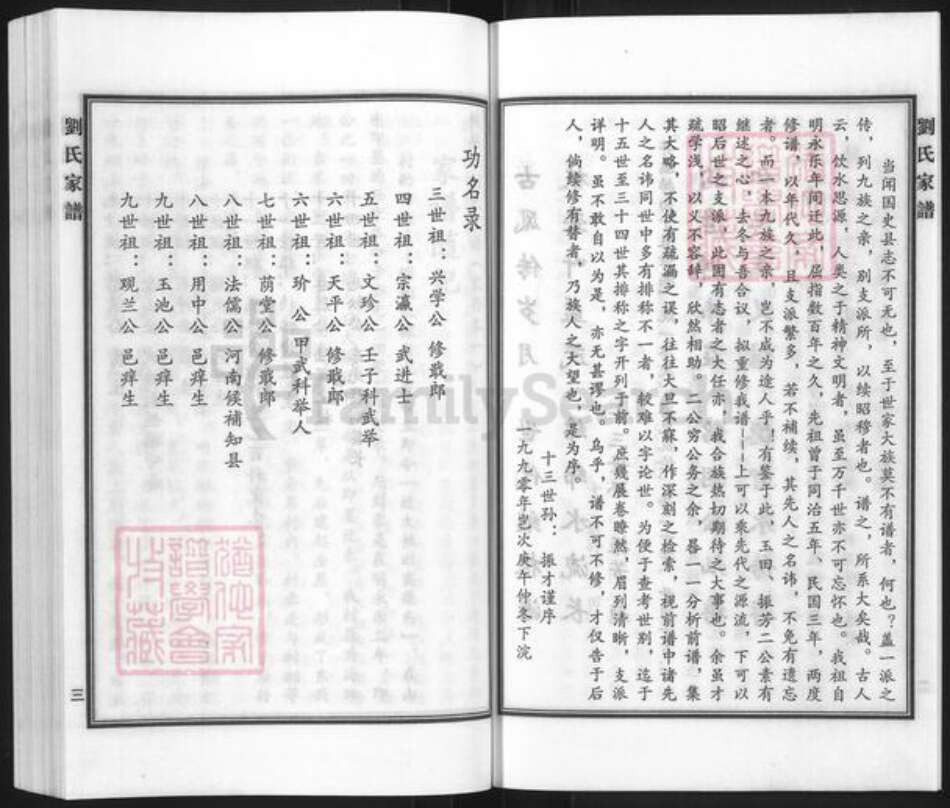 劉氏家譜
当闻国史县志不可无也，至于世家大族莫不有谱者，何也？盖一派之
传，列九族之亲，别支派所，以续昭穆者也。谱之，所系大矣哉。古人
云，饮水思源，人类之于精神文明者，虽至万千世亦不可忘怀也。我祖自
明永乐年间迁此，屈指数百年之久，先祖曾于同治五年、民国三年，两度
修谱，以年代久，且支派繁多，若不补续，其先人之名讳，不免有遗忘
者。而一本九族之亲，岂不成为途人乎！有鉴于此，玉田、振芳二公素有
继述之心，去冬与吾合议，拟重修我谱——上可以乘先代之源流，下可以
昭后世之支派，此固有志者之大任亦，我合族热切期待之大事也。余虽才
疏学浅，以义不容辞，欣然相助。二公穷公务之余，晷一一分析前谱，集
其大略，不使有疏漏之误，往往大旦不寐，作深刻之检索，视前谱中诸先
人之名讳同世中多有排称不一者，较难以字论世。为便于查考世别，迄于
十五世至三十四世其排称之字开列于前。庶几展卷瞭然，眉列清晰，支派
详明。虽不敢自以为是，亦无甚谬也。乌乎，谱不可不修，才仅告于后
人，倘续修有替者，乃族人之大望也，是为序。
十三世孙：振才谨序
一九九零年岁次庚午仲冬下浣
功名录
三世祖：兴学公 修戢郎
四世祖：宗瀛公 武进士
五世祖：文珍公 壬子科武举
六世祖：天平公 修戢郎
六世祖：玠 公 甲武科举人
七世祖：荫堂公 修戢郎
八世祖：法儒公 河南候補知县
八世祖：用中公 邑庠生
九世祖：玉池公 邑庠生
九世祖：观兰公 邑庠生
劉氏家譜
三
FamilySearch